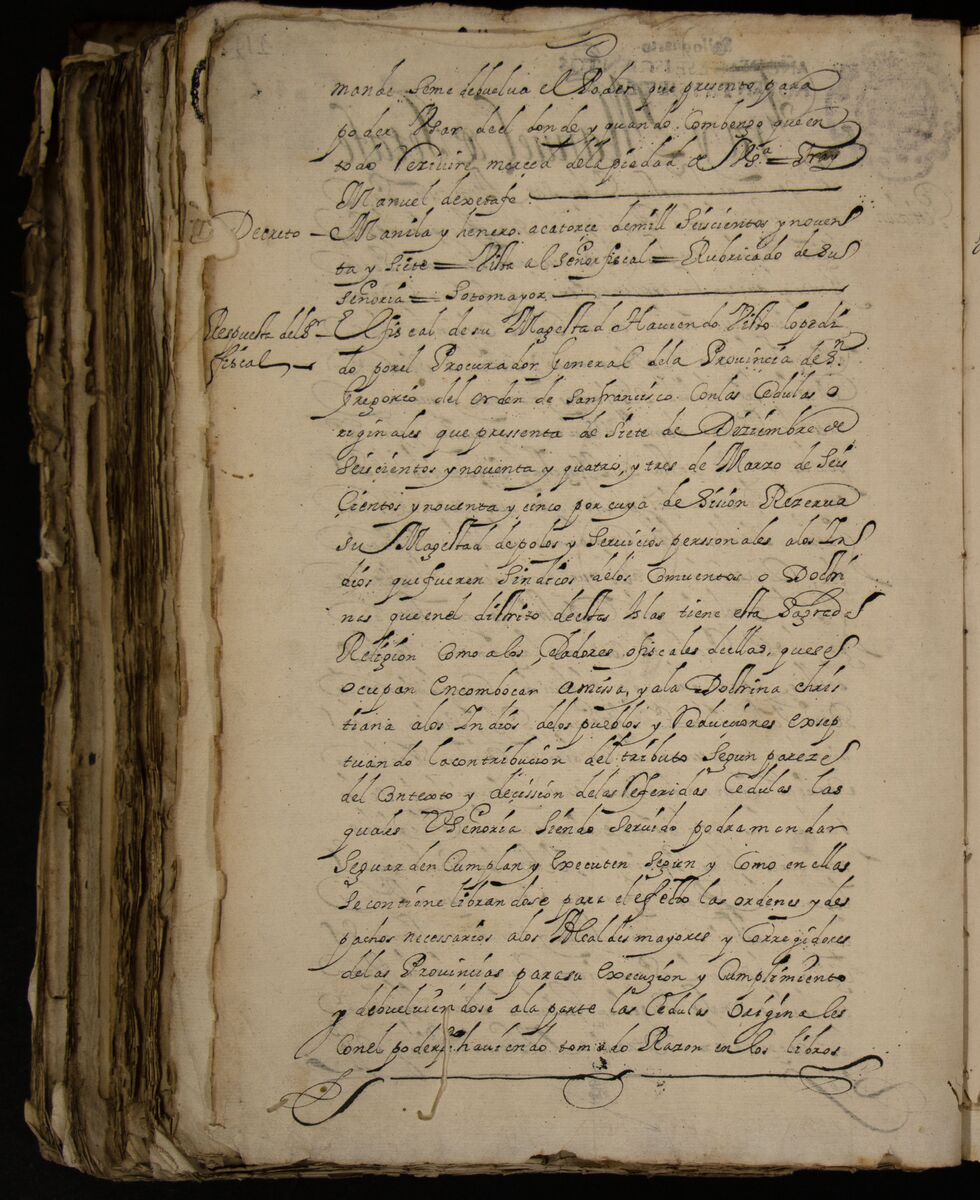 mande seme debuelua el Poder que presento para
poder Vsar deel donde y quando Combengo que en
todo Reciuire merced dela piedad de Vs.ª = Fray
Manuel dexetafe
Decreto – Manila y henero acatorce demill Seiscientos y nouen
ta y Siete = Vista al Señor fiscal = Rubricado de Su
Señoria = Sotomayor
Respuesta del S.r fiscal – El fiscal de su Magestad Hauiendo Visto lopedi
do porel Procurador General dela Prouincia de S.n
Gregorio del orden de sanfrancisco Conlas Cedulas o
riginales que pressenta de Siete de Diziembre de
Seiscientos ynouenta y quatro, y tres de Marzo de Seis
Cientos ynouenta y cinco por cuya desision Rezerua
su Magestad depolos y Seruicios perssonales alos In
dios que fueren Sindicos delos Comuentos o Doctri
nas que enel distrito destas Islas tiene esta Sagrada
Religion Como alos Zeladores ofiscales dellas, quese
ocupan Encombocar amissa, y ala Doctrina chris
tiana alos Indios delos pueblos y Reducciones exsep
tuando lacontribucion del tributo Segun pareze
del Contexto y decission delas Referidas Cedulas las
quales VSeñoria Siendo Seruido podra mandar
Seguarden Cumplan y executen Segun y Como en ellas
Se contiene librandose para el efecto las ordenes y des
pachos necessarios alos Alcaldes mayores y Corregidores
delas Prouincias parasu execuzion y Cumplimiento
y debueluiendose ala parte las Cedulas originales
Conel poder hauiendo tomado Razon en los libros